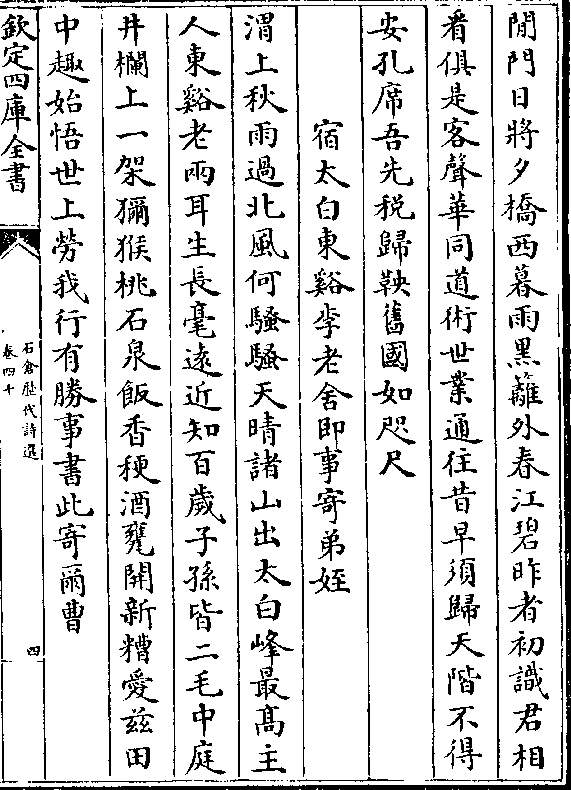 閒門日將夕橋西暮雨黑籬外春江碧昨者初識君相
看俱是客聲華同道術世業通往昔早須歸天階不得
安孔席吾先税歸鞅舊國如咫尺
宿太白東谿李老舍即事寄弟姪
渭上秋雨過北風何騷騷天晴諸山出太白峰最高主
人東谿老兩耳生長毫逺近知百歲子孫皆二毛中庭
井欄上一架獼猴桃石泉飯香稉酒甕開新糟愛兹田
中趣始悟世上勞我行有勝事書此寄爾曹
欽定四庫全書
石倉歴代詩選
卷四十
四